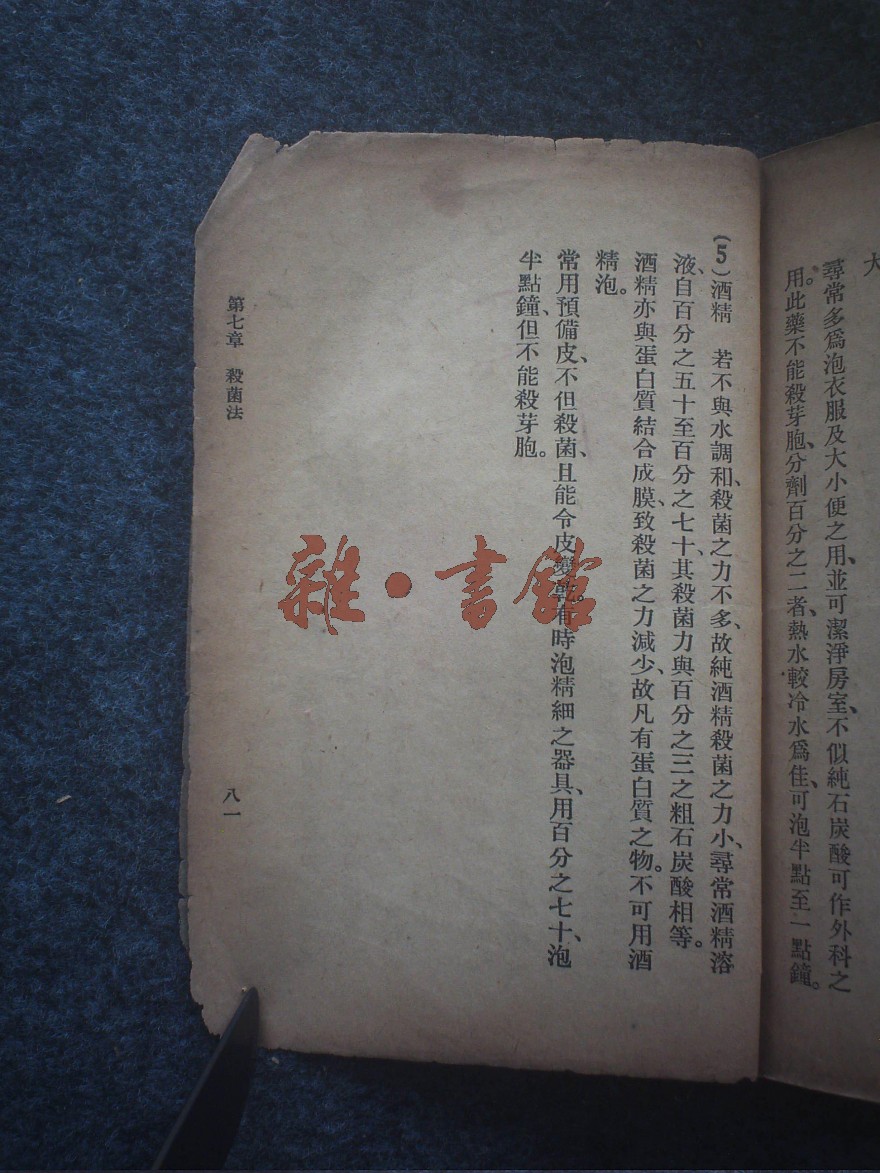 大
尋常多爲泡衣服及大小便之用、並可潔淨房室、不似純石炭酸可作外科之
用。此藥不能殺芽胞、分劑百分之二者、熱水較冷水爲佳、可泡半點至一點鐘。
(5)酒精　若不與水調和、殺菌之力不多、故純酒精殺菌之力小、尋常酒精溶
液、自百分之五十至百分之七十、其殺菌力與百分之三之粗石炭酸相等。
酒精亦與蛋白質結合成膜、致殺菌之力減少、故凡有蛋白質之物。不可用酒
精泡。
常用預備皮、不但殺菌、且能令皮變乾。有時泡精細之器具、用百分之七十、泡
半點鐘、但不能殺芽胞。
第七章　殺菌法
八一
雜·書館